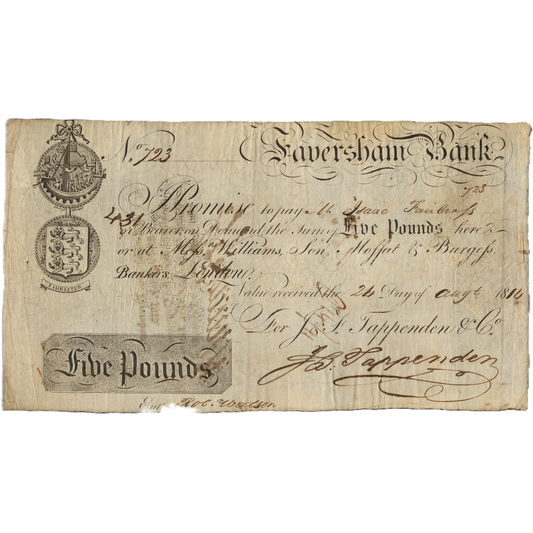 No. 723
Faversham Bank
723
I Promise to pay Mr Isaac
431
or Bearer on Demand the Sum of Five Pounds here
or at Messrs Williams, Son, Moffat & Burgess,
Bankers, London.
Value received the 24 Day of Augt 1814
For J & F. Tappenden & Co.
FIDELITER
Five Pounds
Jas. Tappenden
Entd